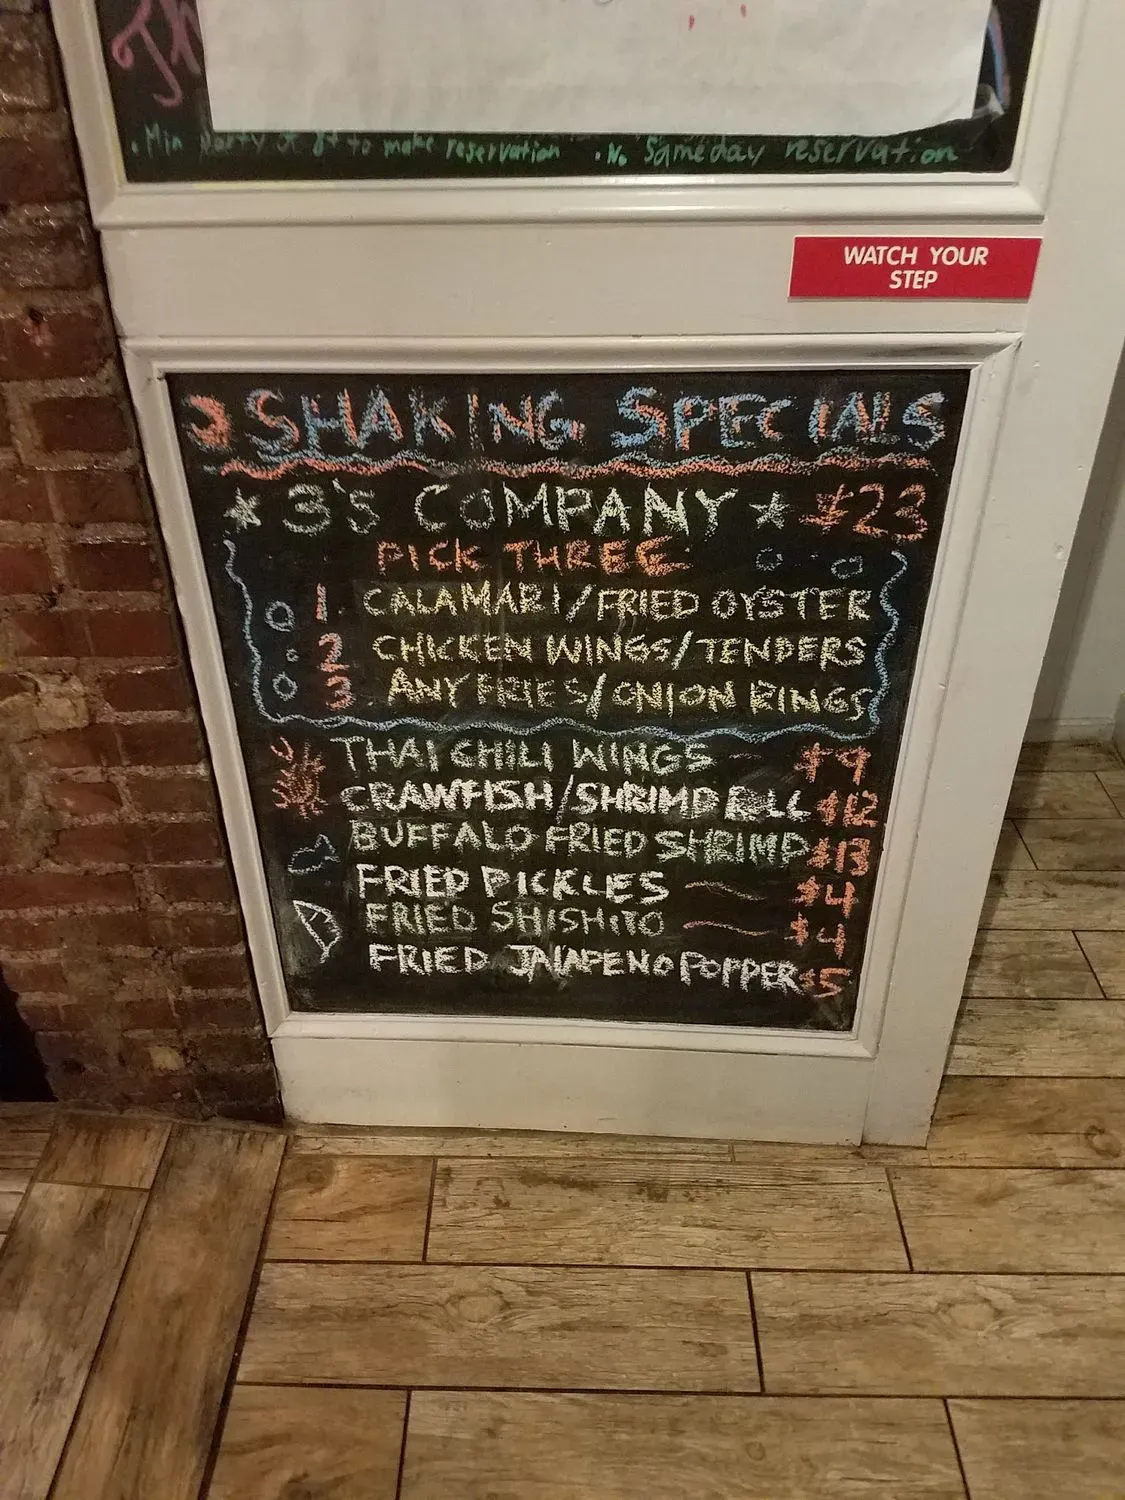 Th
• Min party of 8+ to make reservation • No Sameday reservation
WATCH YOUR
STEP
SHAKING SPECIALS
★ 3's COMPANY ★ $23
PICK THREE
1 CALAMARI/FRIED OYSTER
2 CHICKEN WINGS/TENDERS
3 ANY FRIES/ONION RINGS
THAI CHILI WINGS — $9
CRAWFISH/SHRIMP ROLL $12
BUFFALO FRIED SHRIMP $13
FRIED PICKLES — $4
FRIED SHISHITO — $4
FRIED JALAPENO POPPER $5